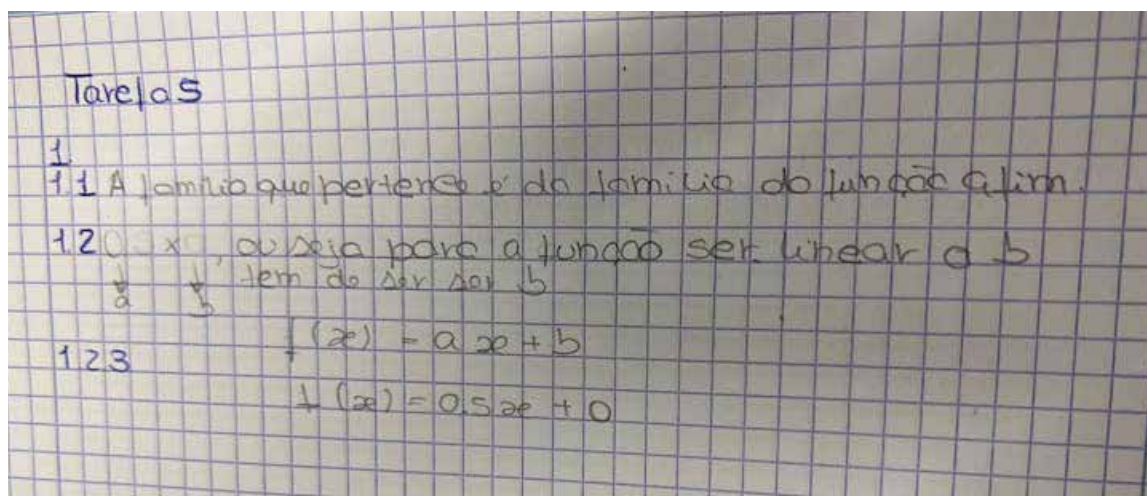 Tarefas
1.
1.1 A família que pertence é da família da função afim.
1.2 x , ou seja para a função ser linear o b
a b tem de ser ser b
f(x) = a x + b
1.2.3
f(x) = 0.5x + 0